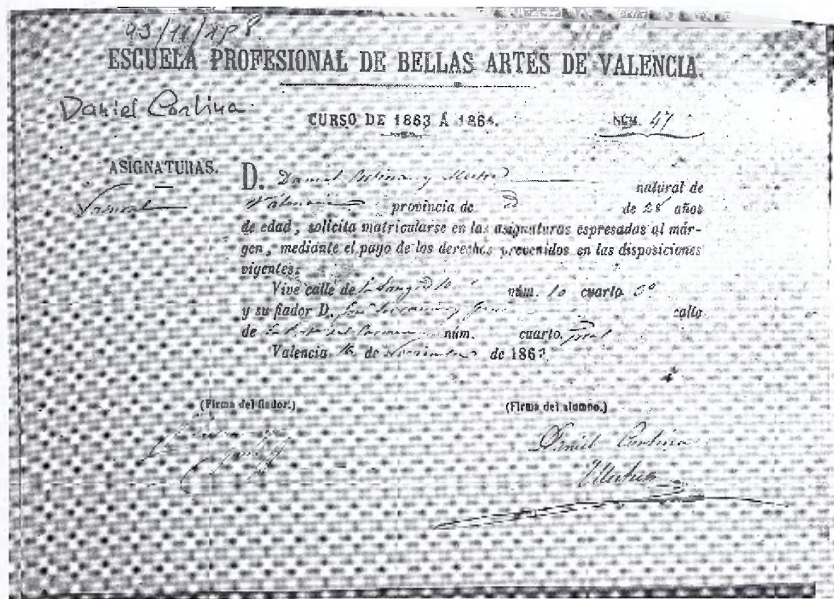 93/11/1P8.
ESCUELA PROFESIONAL DE BELLAS ARTES DE VALENCIA.
Daniel Cortina
CURSO DE 1863 Á 1864.
NÚM. 47
ASIGNATURAS.
D. Daniel Cortina y
natural de
Natural
Valencia provincia de de 28 años
de edad, solicita matricularse en las asignaturas espresadas al már-
gen, mediante el pago de los derechos prevenidos en las disposiciones
vigentes.
Vive calle de núm. 10 cuarto 3º
y su fiador D. José y calle
de núm. cuarto pral
Valencia 16 de Noviembre de 1863
(Firma del fiador.)
(Firma del alumno.)
Daniel Cortina